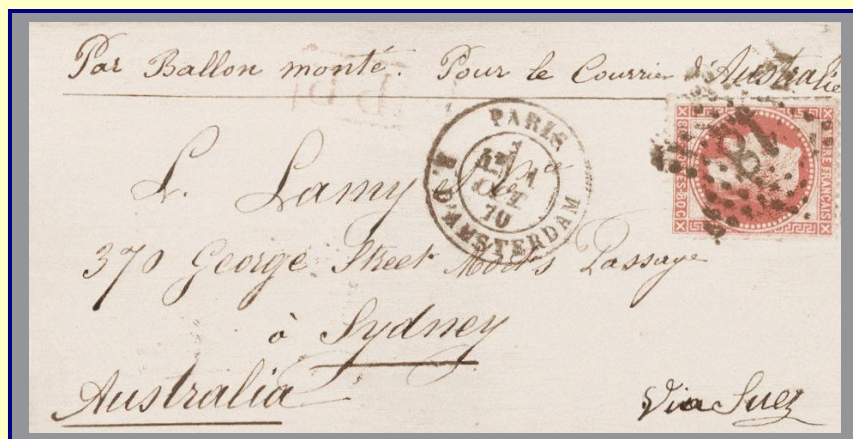 Par Ballon monté. Pour le Courrier d'Australie
PD
PARIS
OCT
70
R. D'AMSTERDAM
18
FRANÇAIS
L. Lamy et Cie
370 George Street Passage
à Sydney
Australia
Via Suez